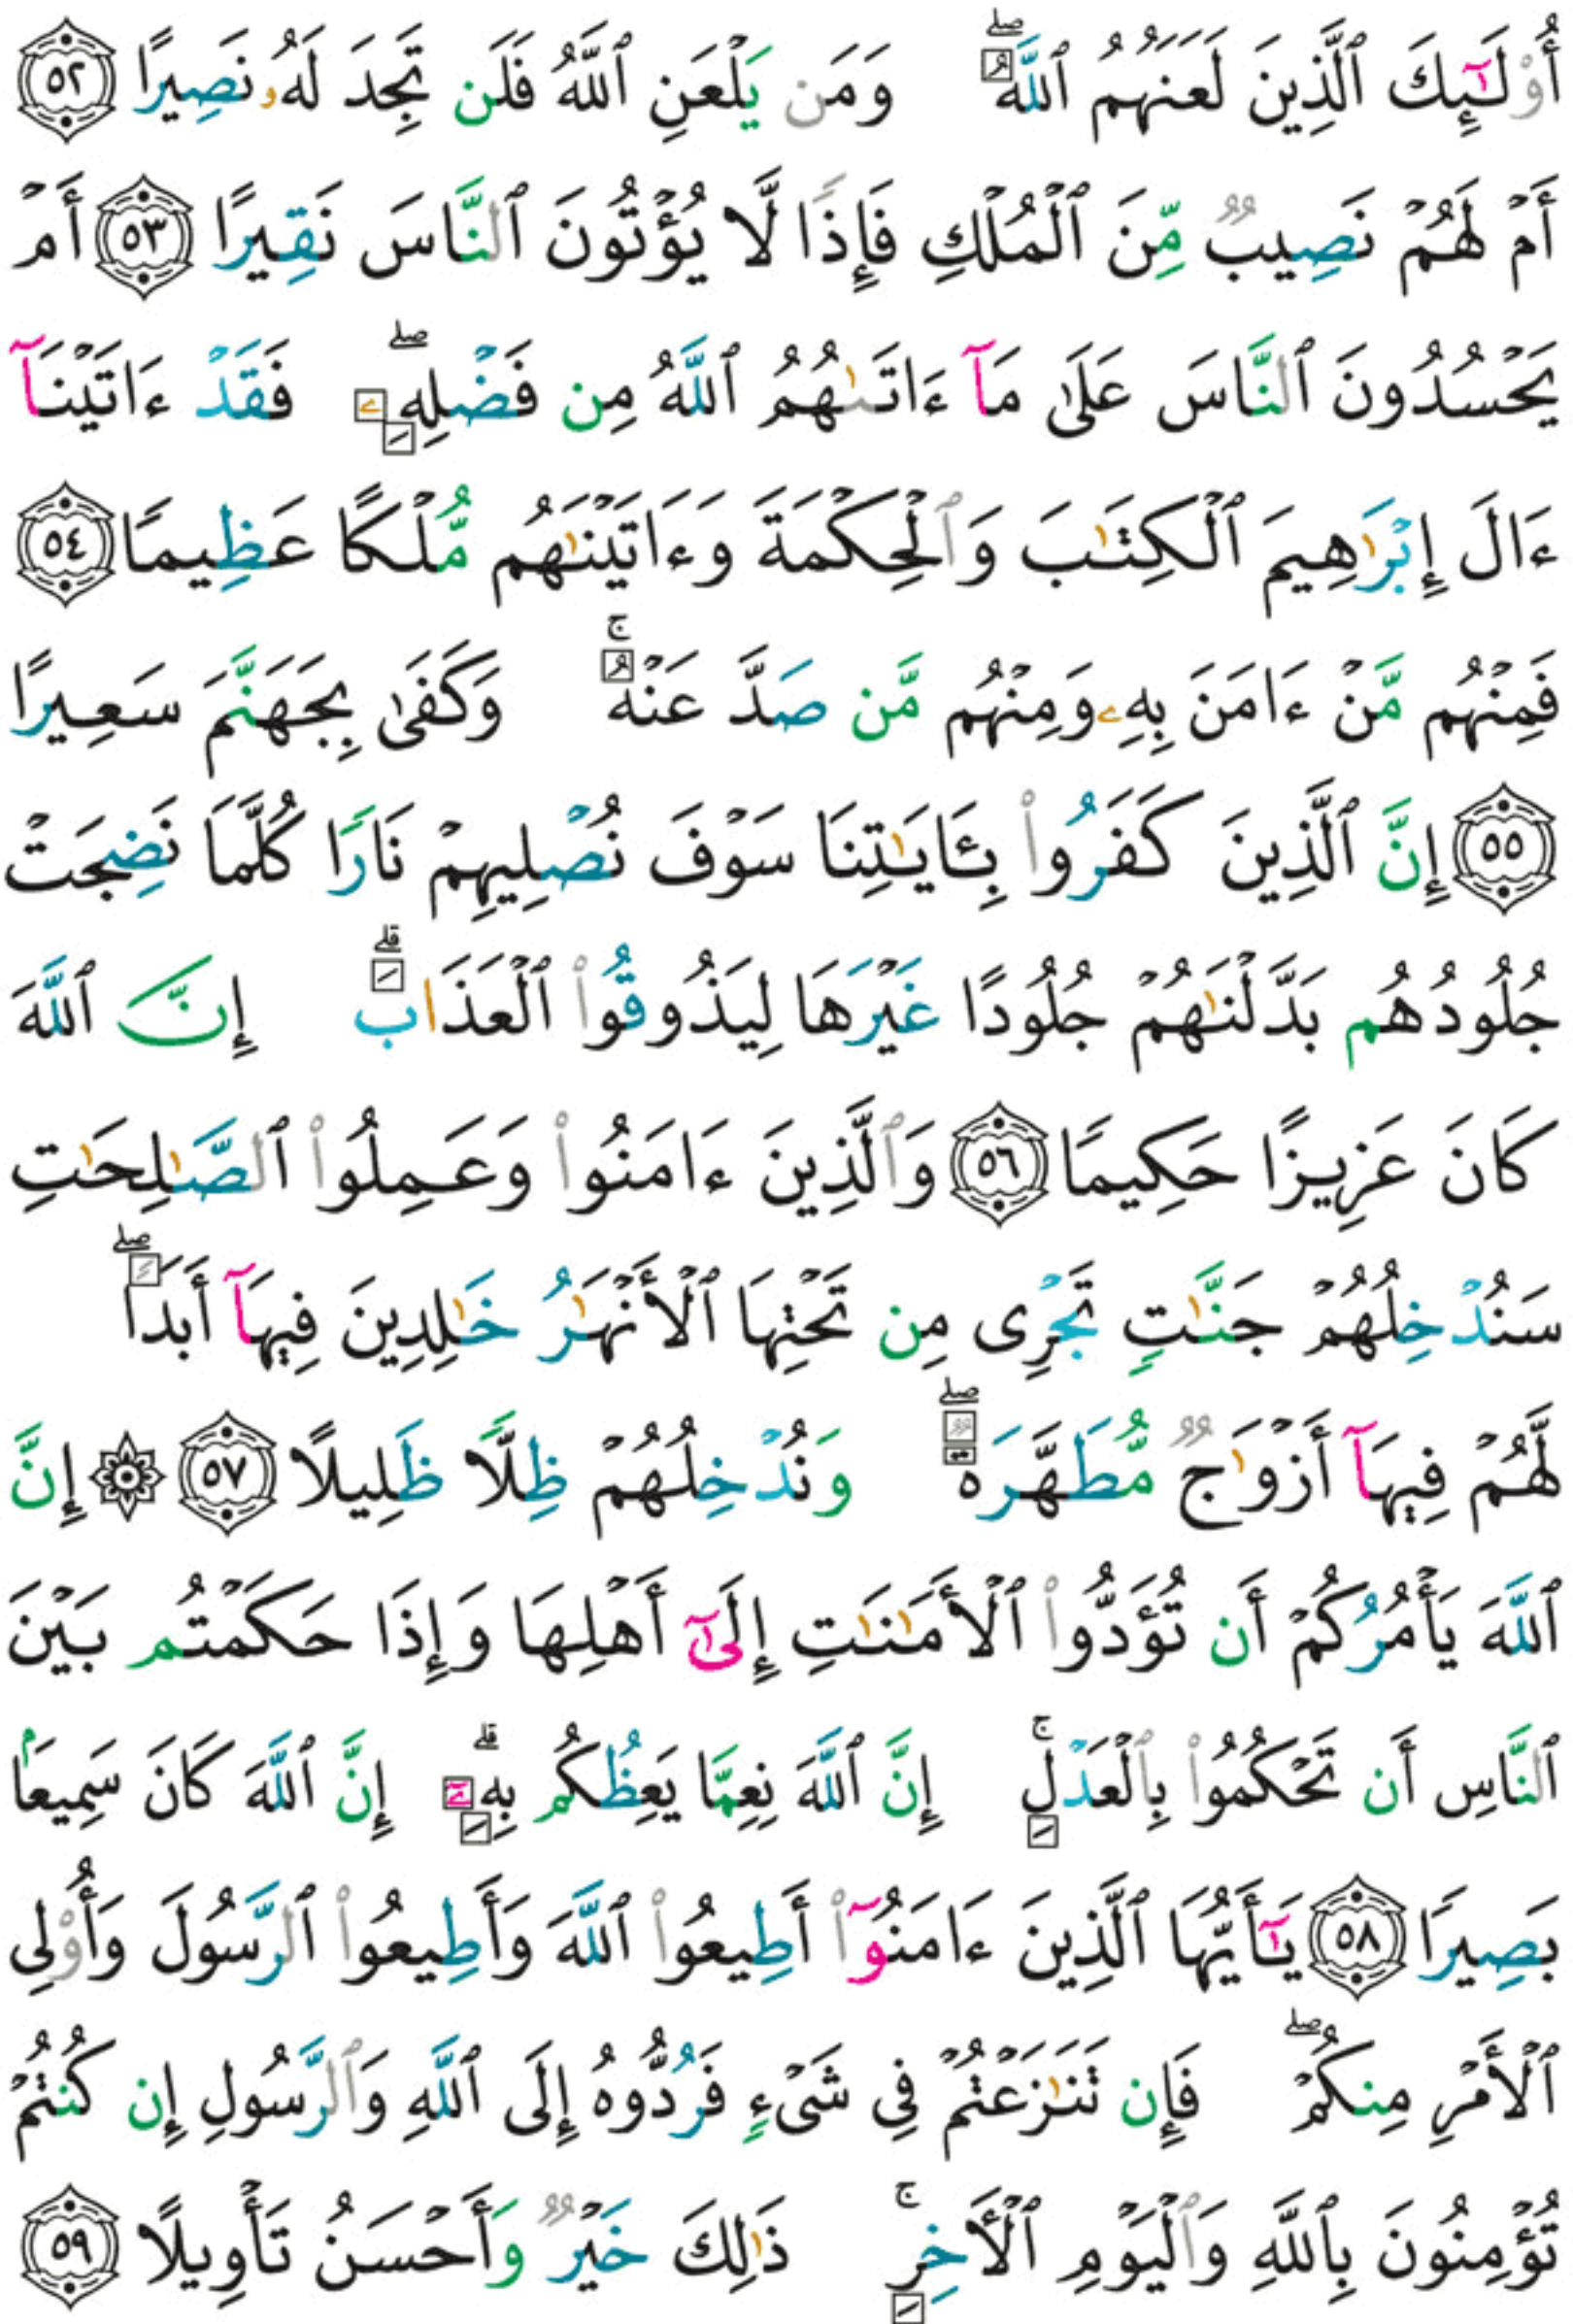 أُوْلَٰٓئِكَ ٱلَّذِينَ لَعَنَهُمُ ٱللَّهُۖ وَمَن يَلْعَنِ ٱللَّهُ فَلَن تَجِدَ لَهُۥ نَصِيرًا ٥٢
أَمْ لَهُمْ نَصِيبٌ مِّنَ ٱلْمُلْكِ فَإِذًا لَّا يُؤْتُونَ ٱلنَّاسَ نَقِيرًا ٥٣ أَمْ
يَحْسُدُونَ ٱلنَّاسَ عَلَىٰ مَآ ءَاتَىٰهُمُ ٱللَّهُ مِن فَضْلِهِۦۖ فَقَدْ ءَاتَيْنَآ
ءَالَ إِبْرَٰهِيمَ ٱلْكِتَٰبَ وَٱلْحِكْمَةَ وَءَاتَيْنَٰهُم مُّلْكًا عَظِيمًا ٥٤
فَمِنْهُم مَّنْ ءَامَنَ بِهِۦ وَمِنْهُم مَّن صَدَّ عَنْهُۚ وَكَفَىٰ بِجَهَنَّمَ سَعِيرًا
٥٥ إِنَّ ٱلَّذِينَ كَفَرُوا۟ بِـَٔايَٰتِنَا سَوْفَ نُصْلِيهِمْ نَارًا كُلَّمَا نَضِجَتْ
جُلُودُهُم بَدَّلْنَٰهُمْ جُلُودًا غَيْرَهَا لِيَذُوقُوا۟ ٱلْعَذَابَۗ إِنَّ ٱللَّهَ
كَانَ عَزِيزًا حَكِيمًا ٥٦ وَٱلَّذِينَ ءَامَنُوا۟ وَعَمِلُوا۟ ٱلصَّٰلِحَٰتِ
سَنُدْخِلُهُمْ جَنَّٰتٍ تَجْرِى مِن تَحْتِهَا ٱلْأَنْهَٰرُ خَٰلِدِينَ فِيهَآ أَبَدًاۖ
لَّهُمْ فِيهَآ أَزْوَٰجٌ مُّطَهَّرَةٌۖ وَنُدْخِلُهُمْ ظِلًّا ظَلِيلًا ٥٧ ۞ إِنَّ
ٱللَّهَ يَأْمُرُكُمْ أَن تُؤَدُّوا۟ ٱلْأَمَٰنَٰتِ إِلَىٰٓ أَهْلِهَا وَإِذَا حَكَمْتُم بَيْنَ
ٱلنَّاسِ أَن تَحْكُمُوا۟ بِٱلْعَدْلِۚ إِنَّ ٱللَّهَ نِعِمَّا يَعِظُكُم بِهِۦٓۗ إِنَّ ٱللَّهَ كَانَ سَمِيعًۢا
بَصِيرًا ٥٨ يَٰٓأَيُّهَا ٱلَّذِينَ ءَامَنُوٓا۟ أَطِيعُوا۟ ٱللَّهَ وَأَطِيعُوا۟ ٱلرَّسُولَ وَأُوْلِى
ٱلْأَمْرِ مِنكُمْۖ فَإِن تَنَٰزَعْتُمْ فِى شَىْءٍ فَرُدُّوهُ إِلَى ٱللَّهِ وَٱلرَّسُولِ إِن كُنتُمْ
تُؤْمِنُونَ بِٱللَّهِ وَٱلْيَوْمِ ٱلْأَخِرِۚ ذَٰلِكَ خَيْرٌ وَأَحْسَنُ تَأْوِيلًا ٥٩